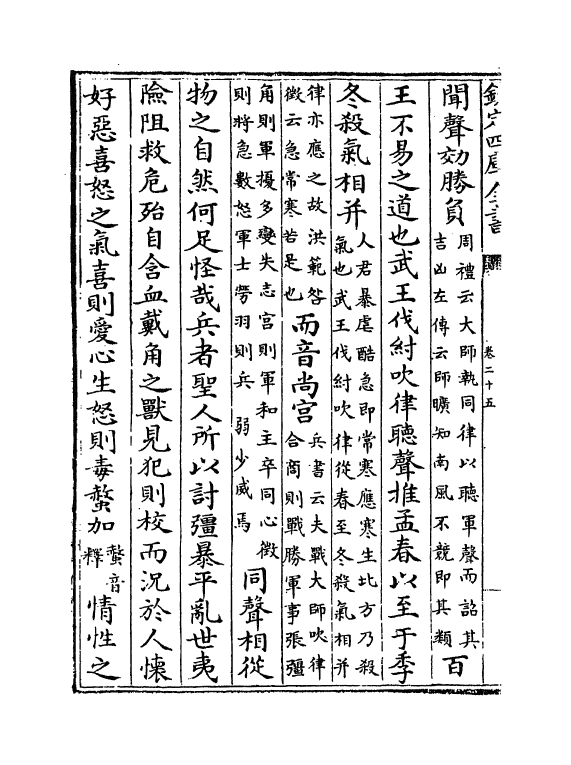 欽定四庫全書
卷二十五
聞聲効勝負
周禮云大師執同律以聽軍聲而詔其
吉凶左傳云師曠知南風不競即其類
百
王不易之道也武王伐紂吹律聽聲推孟春以至于季
冬殺氣相并
人君暴虐酷急即常寒應寒生北方乃殺
氣也武王伐紂吹律從春至冬殺氣相并
律亦應之故洪範咎
徵云急常寒若是也
而音尚宫
兵書云夫戰大師吹律
合商則戰勝軍事張彊
角則軍擾多變失志宫則軍和主卒同心徵
則將急數怒軍士勞羽則兵 弱少威焉
同聲相從
物之自然何足怪哉兵者聖人所以討彊暴平亂世夷
險阻救危殆自含血戴角之獸見犯則校而況於人懷
好惡喜怒之氣喜則愛心生怒則毒螫加
螫音
釋
情性之